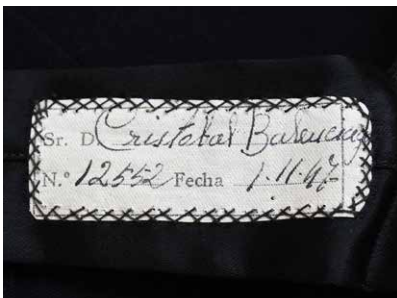 Sr. D. Cristobal Balenciaga
N.º 12552 Fecha 1.11.47